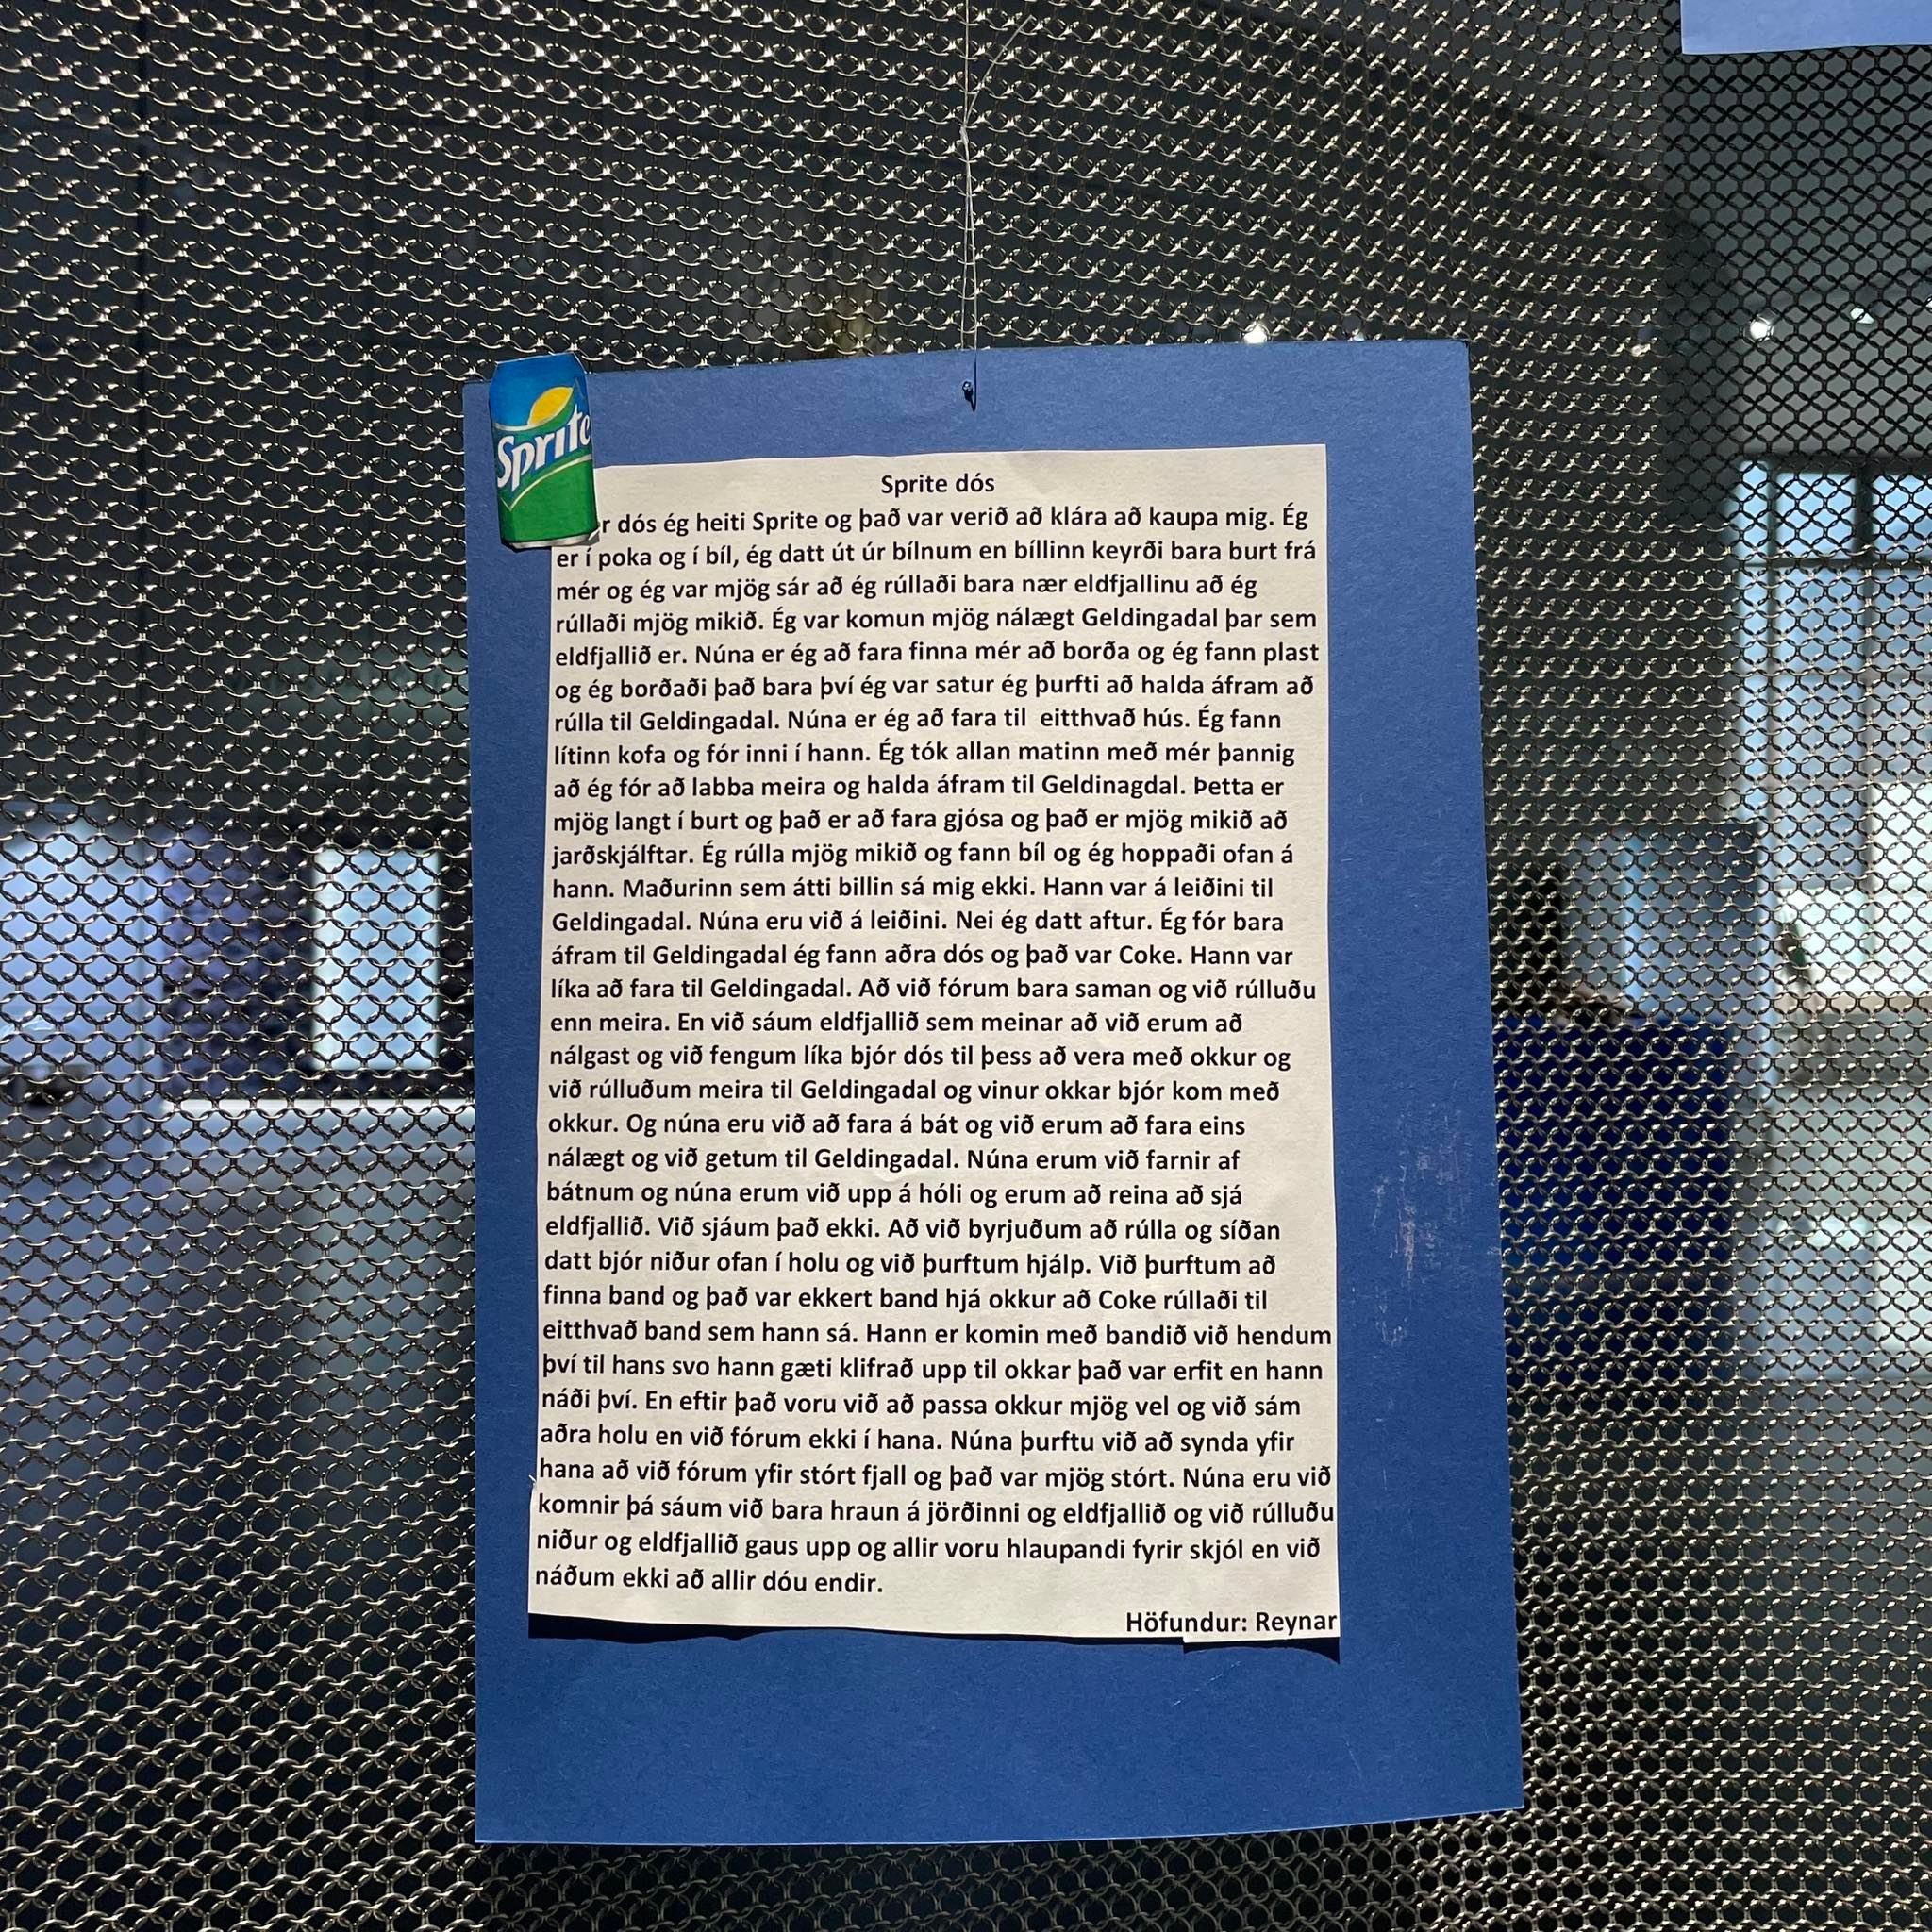 Sprite
Sprite dós
dós ég heiti Sprite og það var verið að klára að kaupa mig. Ég
er í poka og í bíl, ég datt út úr bílnum en bíllinn keyrði bara burt frá
mér og ég var mjög sár að ég rúllaði bara nær eldfjallinu að ég
rúllaði mjög mikið. Ég var komun mjög nálægt Geldingadal þar sem
eldfjallið er. Núna er ég að fara finna mér að borða og ég fann plast
og ég borðaði það bara því ég var satur ég þurfti að halda áfram að
rúlla til Geldingadal. Núna er ég að fara til  eitthvað hús. Ég fann
lítinn kofa og fór inni í hann. Ég tók allan matinn með mér þannig
að ég fór að labba meira og halda áfram til Geldinagdal. Þetta er
mjög langt í burt og það er að fara gjósa og það er mjög mikið að
jarðskjálftar. Ég rúlla mjög mikið og fann bíl og ég hoppaði ofan á
hann. Maðurinn sem átti billin sá mig ekki. Hann var á leiðini til
Geldingadal. Núna eru við á leiðini. Nei ég datt aftur. Ég fór bara
áfram til Geldingadal ég fann aðra dós og það var Coke. Hann var
líka að fara til Geldingadal. Að við fórum bara saman og við rúlluðu
enn meira. En við sáum eldfjallið sem meinar að við erum að
nálgast og við fengum líka bjór dós til þess að vera með okkur og
við rúlluðum meira til Geldingadal og vinur okkar bjór kom með
okkur. Og núna eru við að fara á bát og við erum að fara eins
nálægt og við getum til Geldingadal. Núna erum við farnir af
bátnum og núna erum við upp á hóli og erum að reina að sjá
eldfjallið. Við sjáum það ekki. Að við byrjuðum að rúlla og síðan
datt bjór niður ofan í holu og við þurftum hjálp. Við þurftum að
finna band og það var ekkert band hjá okkur að Coke rúllaði til
eitthvað band sem hann sá. Hann er komin með bandið við hendum
því til hans svo hann gæti klifrað upp til okkar það var erfit en hann
náði því. En eftir það voru við að passa okkur mjög vel og við sám
aðra holu en við fórum ekki í hana. Núna þurftu við að synda yfir
hana að við fórum yfir stórt fjall og það var mjög stórt. Núna eru við
komnir þá sáum við bara hraun á jörðinni og eldfjallið og við rúlluðu
niður og eldfjallið gaus upp og allir voru hlaupandi fyrir skjól en við
náðum ekki að allir dóu endir.
Höfundur: Reynar